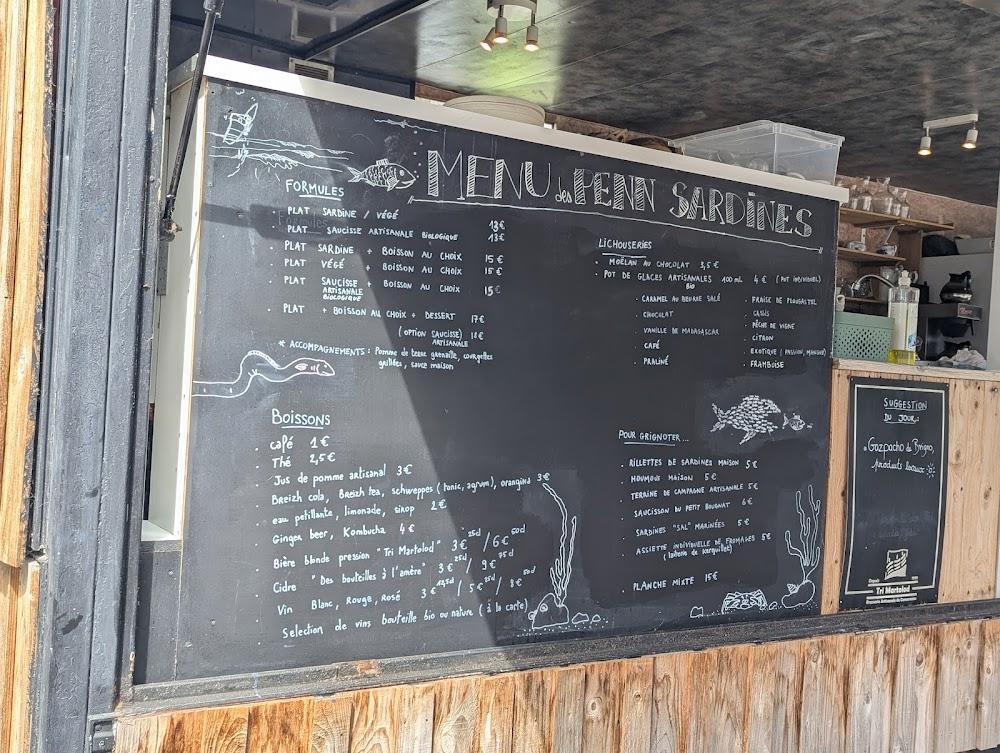 MENU des PENN SARDINES
FORMULES
PLAT SARDINE / VÉGÉ 13€
PLAT SAUCISSE ARTISANALE BIOLOGIQUE 13€
PLAT SARDINE + BOISSON AU CHOIX 15 €
PLAT VÉGÉ + BOISSON AU CHOIX 15 €
PLAT SAUCISSE ARTISANALE BIOLOGIQUE + BOISSON AU CHOIX 15€
PLAT + BOISSON AU CHOIX + DESSERT 17€
(OPTION SAUCISSE ARTISANALE) 18€
* ACCOMPAGNEMENTS : Pomme de terre grenaille, courgettes
grillées, sauce maison
BOISSONS
café 1 €
Thé 2,5€
Jus de pomme artisanal 3€
Breizh cola, Breizh tea, schweppes (tonic, agrum), orangina 3€
eau petillante, limonade, sirop 2€
Ginger beer, Kombucha 4 €
Bière blonde pression "Tri Martolod" 3€ 25cl / 6€ 50cl
Cidre "Des bouteilles à l'amère" 3€ 25cl / 9€ 75cl
Vin Blanc, Rouge, Rosé 3€ 12,5cl / 5€ 25cl / 8€ 50cl
Selection de vins bouteille bio ou nature (à la carte)
LICHOUSERIES
MOËLAN AU CHOCOLAT 3,5 €
POT DE GLACES ARTISANALES BIO 100 mL 4 € (POT INDIVIDUEL)
CARAMEL AU BEURRE SALÉ
CHOCOLAT
VANILLE DE MADAGASCAR
CAFÉ
PRALINÉ
FRAISE DE PLOUGASTEL
CASSIS
PÊCHE DE VIGNE
CITRON
EXOTIQUE (PASSION, MANGUE)
FRAMBOISE
POUR GRIGNOTER ...
RILLETTES DE SARDINES MAISON 5 €
HOUMOUS MAISON 5 €
TERRINE DE CAMPAGNE ARTISANALE 5€
SAUCISSON DU PETIT BOUGNAT 6€
SARDINES "SAL" MARINÉES 5 €
ASSIETTE INDIVIDUELLE DE FROMAGES 5€
(laiterie de Kerguillet)
PLANCHE MIXTE 15€
SUGGESTION
DU JOUR :
Gazpacho de
produits locaux
Depuis
Tri Martolod